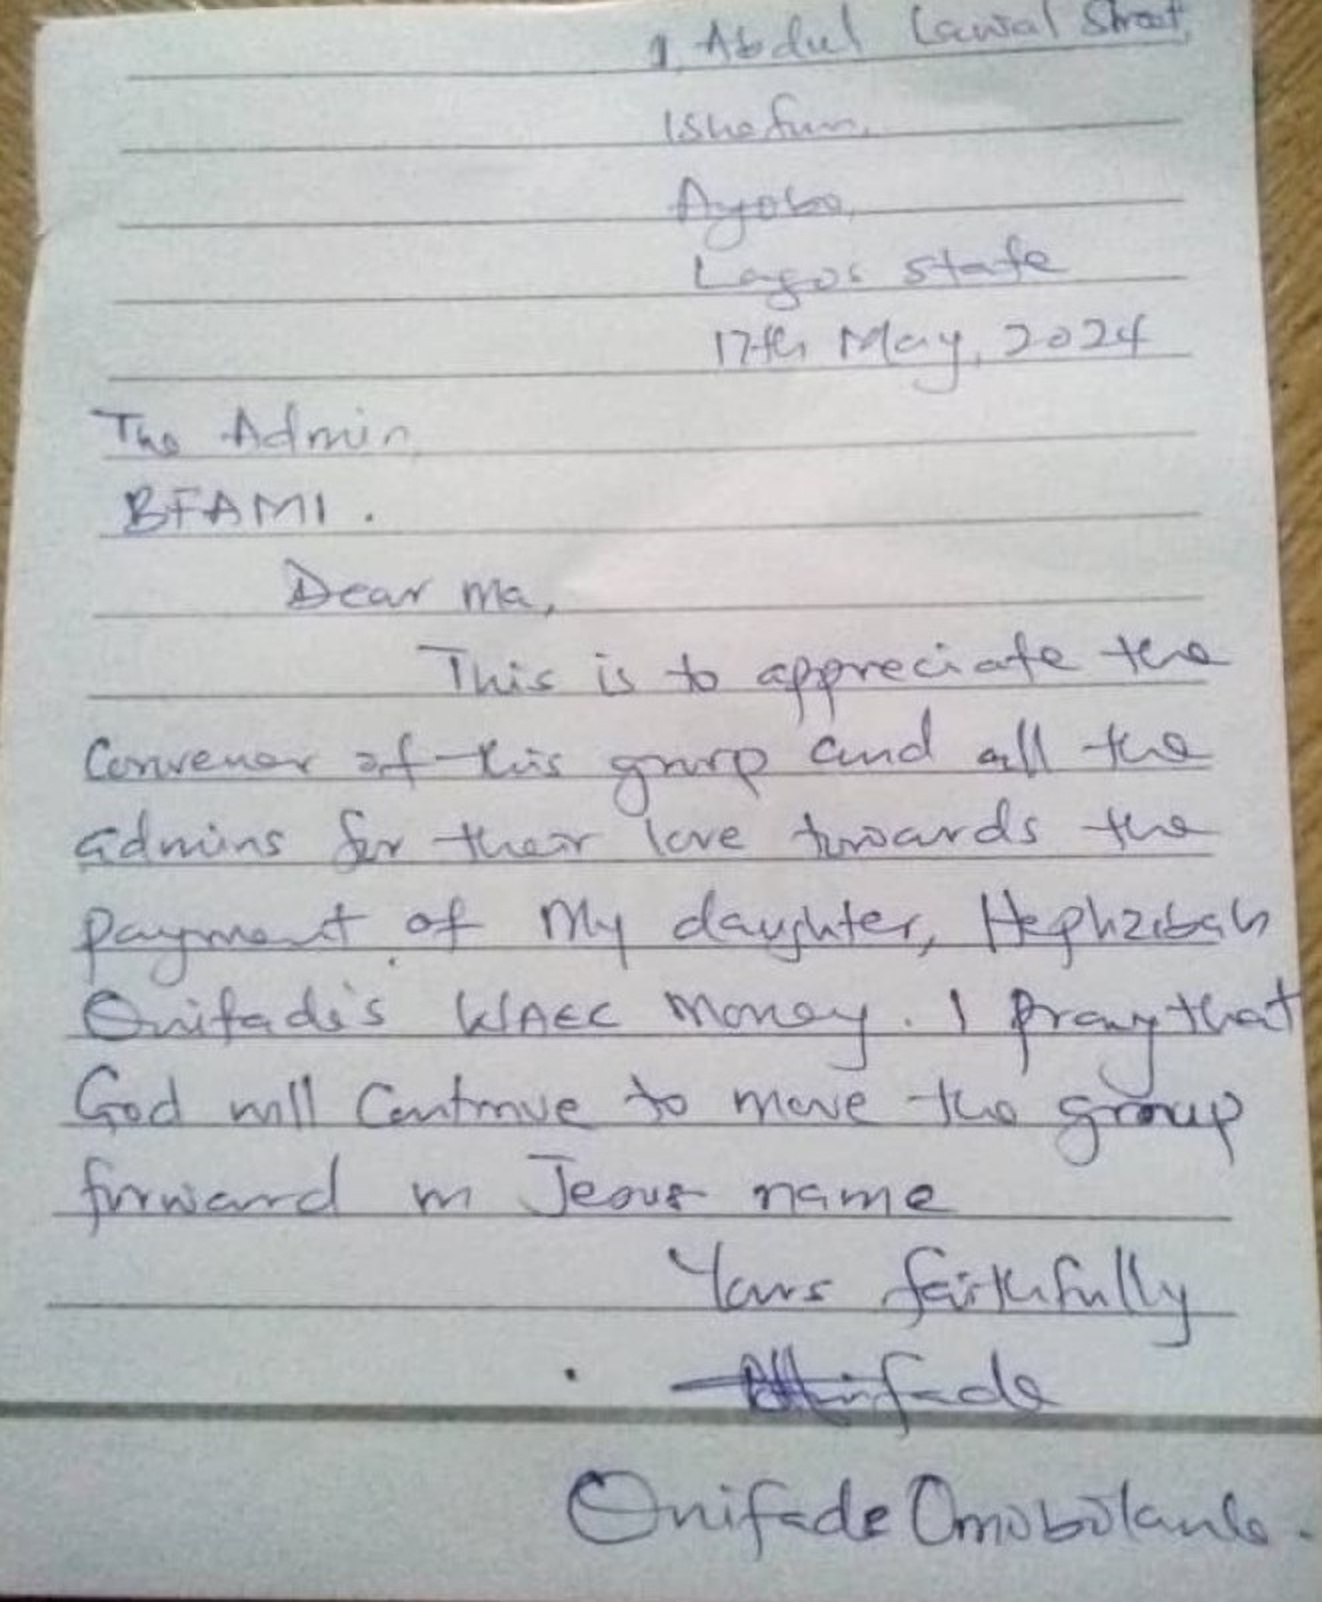 1, Abdul Lawal Street,
Ishefun,
Ayobo,
Lagos State
17th May, 2024
The Admin,
BFAMI.
Dear Ma,
This is to appreciate the
Convener of this group and all the
admins for their love towards the
payment of my daughter, Hephzibah
Onifade's WAEC money. I pray that
God will continue to move the group
forward in Jesus name
Yours faithfully
Onifade Omobolanle.